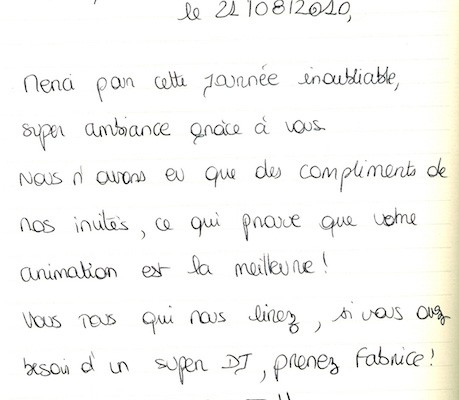 le 21/08/2010,
Merci pour cette journée inoubliable,
super ambiance grâce à vous.
Nous n'avons eu que des compliments de
nos invités, ce qui prouve que votre
animation est la meilleure!
Vous tous qui nous lirez, si vous avez
besoin d'un super DJ, prenez Fabrice!